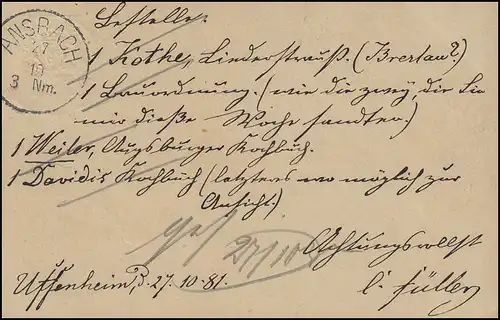 ANSBACH
27
10
3 Nm.
Bestelle:
1 Kothe, Liederstrauß. (Breslau?)
1 Bauordnung. (wie die zwey, die Sie
mir dieße Woche sandten.)
1 Weiler, Augsburger Kochbuch.
1 Davidis Kochbuch (letzteres wo möglich zur
Ansicht.)
27/10
Achtungsvollst
Uffenheim, d. 27.10.81.
C. Füller